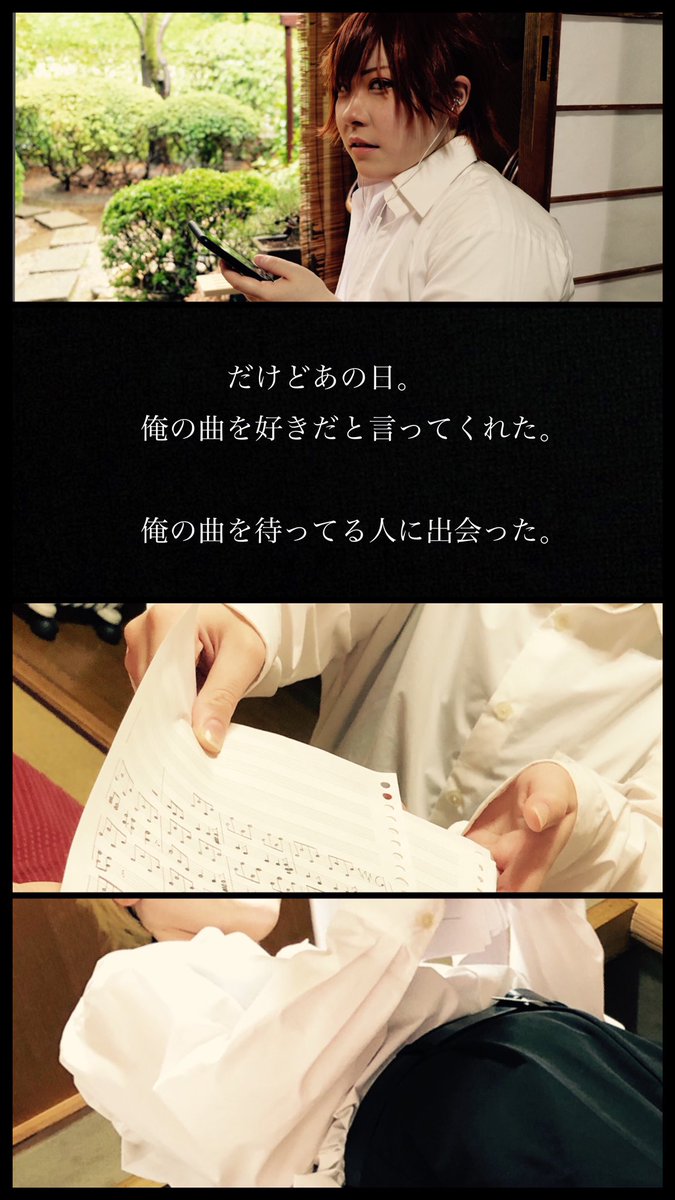 だけどあの日。
俺の曲を好きだと言ってくれた。
俺の曲を待ってる人に出会った。